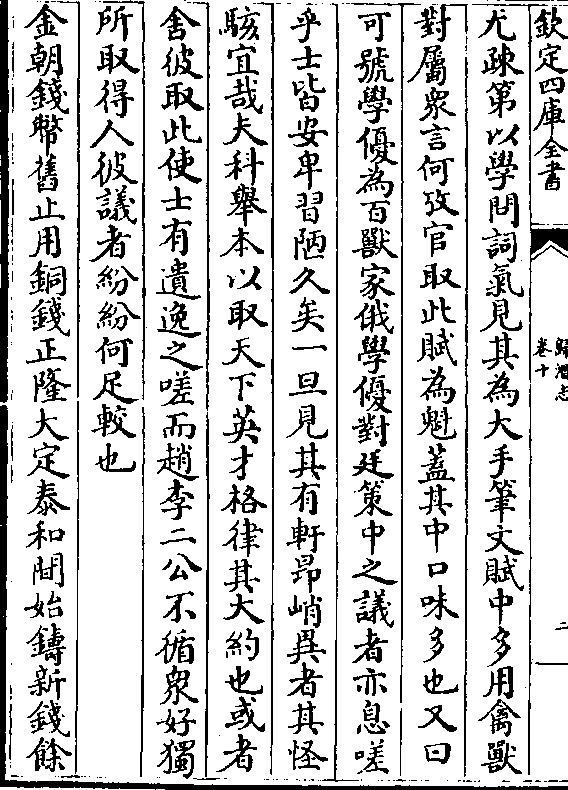 欽定四庫全書
歸潛志
卷十
二
尤疎第以學問詞氣見其為大手筆文賦中多用禽獸
對屬衆言何攷官取此賦為魁蓋其中口味多也又曰
可號學優為百獸家俄學優對廷策中之議者亦息嗟
乎士皆安卑習陋久矣一旦見其有軒昂峭異者其怪
駭宜哉夫科舉本以取天下英才格律其大約也或者
舍彼取此使士有遺逸之嗟而趙李二公不循衆好獨
所取得人彼議者紛紛何足較也
金朝錢幣舊止用銅錢正隆大定泰和間始鑄新錢餘